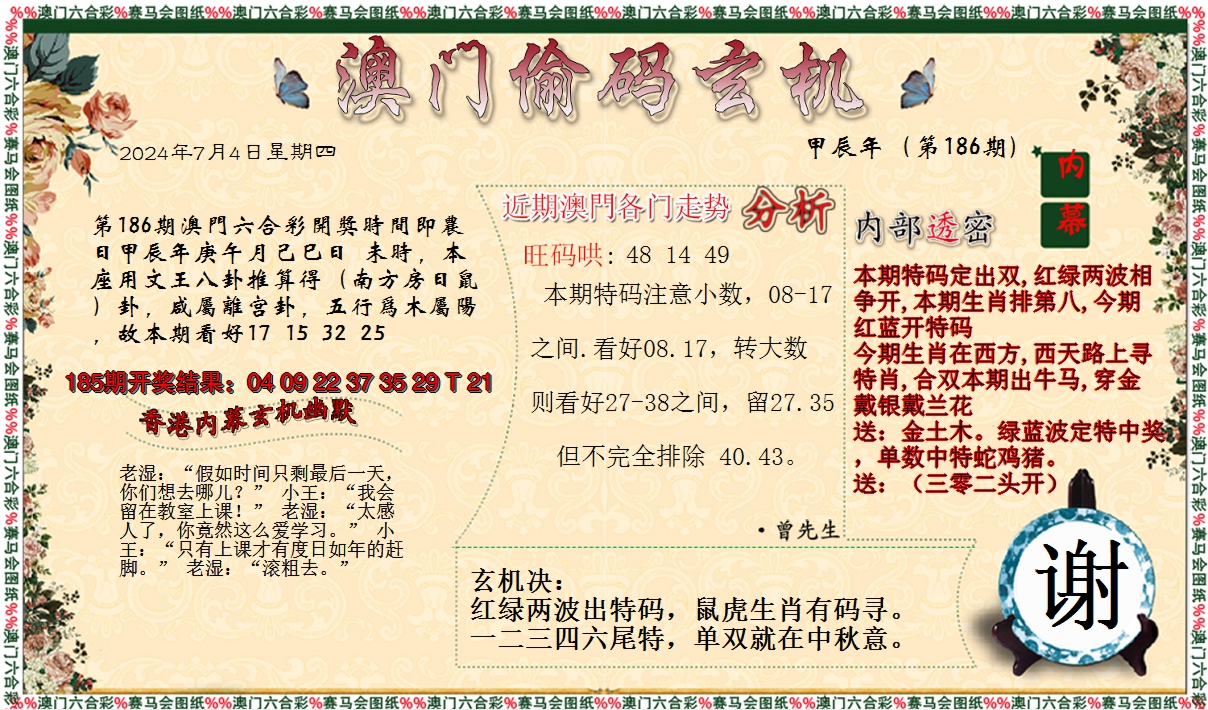 %%澳门六合彩%赛马会图纸%%澳门六合彩%赛马会图纸%%澳门六合彩%赛马会图纸%%澳门六合彩%赛马会图纸%%澳门六合彩%赛马会图纸%%澳门六合彩%赛马会图纸%%
澳门偷码玄机
2024年7月4日星期四
甲辰年（第186期）
内幕
第186期澳門六合彩開獎時間即農
日甲辰年庚午月己巳日 未時，本
座用文王八卦推算得（南方房日鼠
）卦，咸屬離宫卦，五行爲木屬陽
，故本期看好17 15 32 25
185期开奖结果：04 09 22 37 35 29 T 21
香港内幕玄机幽默
老湿：“假如时间只剩最后一天，
你们想去哪儿？” 小王：“我会
留在教室上课！” 老湿：“太感
人了，你竟然这么爱学习。” 小
王：“只有上课才有度日如年的赶
脚。” 老湿：“滚粗去。”
近期澳門各门走势 分析
旺码哄: 48 14 49
本期特码注意小数，08-17
之间.看好08.17，转大数
则看好27-38之间，留27.35
但不完全排除 40.43。
·曾先生
内部透密
本期特码定出双,红绿两波相
争开,本期生肖排第八,今期
红蓝开特码
今期生肖在西方,西天路上寻
特肖,合双本期出牛马,穿金
戴银戴兰花
送：金土木。绿蓝波定特中奖
，单数中特蛇鸡猪。
送：（三零二头开）
玄机决：
红绿两波出特码，鼠虎生肖有码寻。
一二三四六尾特，单双就在中秋意。
谢
%%澳门六合彩%赛马会图纸%%澳门六合彩%赛马会图纸%%澳门六合彩%赛马会图纸%%澳门六合彩%赛马会图纸%%澳门六合彩%赛马会图纸%%澳门六合彩%赛马会图纸%%